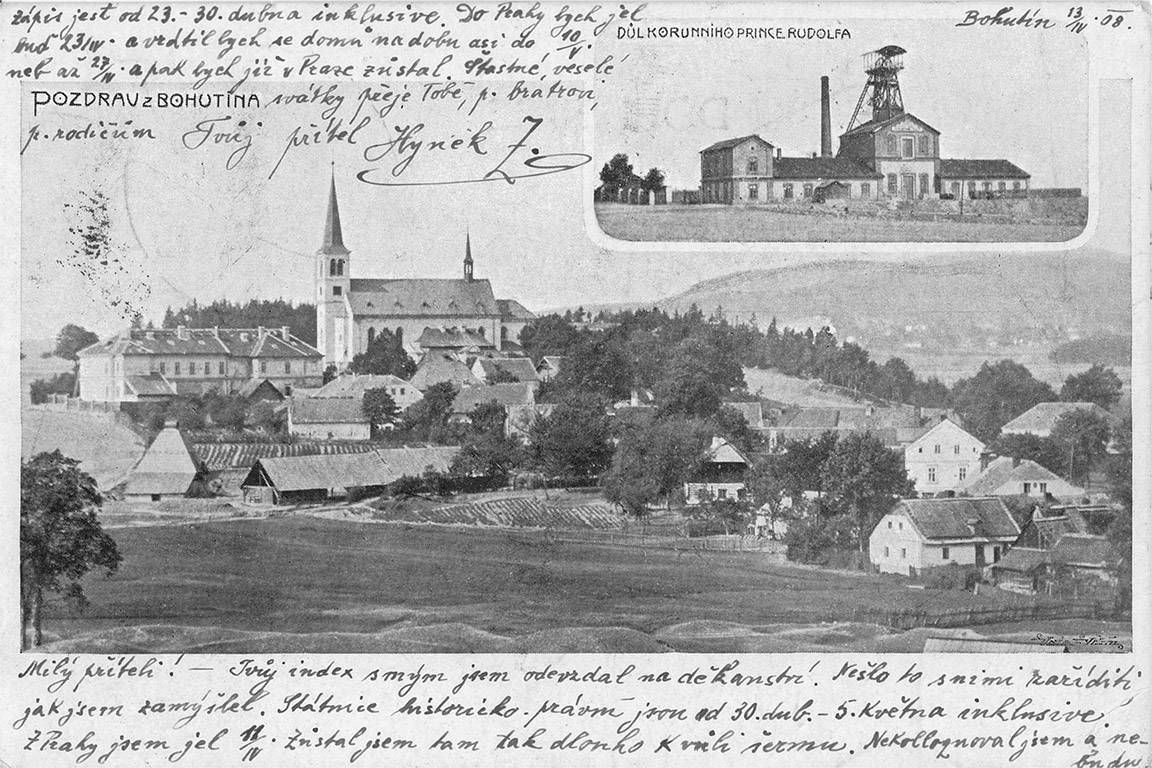 Bohutín 13/IV 08.
Milý příteli! — Tvůj index s mým jsem odevzdal na děkanství. Nešlo to s nimi zaříditi
jak jsem zamýšlel. Státnice historicko-právní jsou od 30. dub. – 5. Května inklusive.
Z Prahy jsem jel 11/IV. Zůstal jsem tam tak dlouho kvůli šermu. Nekolloqnoval jsem a ne-
budu.
Zápis jest od 23. - 30. dubna inklusive. Do Prahy bych jel
buď 23/IV. a vrátil bych se domů na dobu asi do 10/V.
neb až 27/IV. a pak bych již v Praze zůstal. Šťastné, veselé
svátky přeje Tobě, p. bratrovi,
p. rodičům Tvůj přítel Hynek Z.
POZDRAV z BOHUTÍNA
DŮL KORUNNÍHO PRINCE RUDOLFA